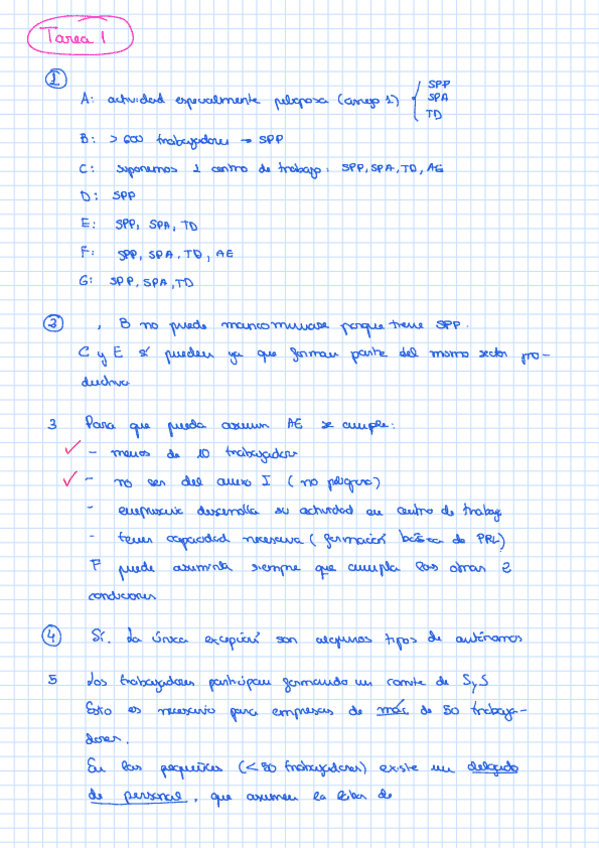 Tarea 1
1
A: actividad especialmente peligrosa (anexo 1) { SPP
SPA
TD
B: > 600 trabajadores → SPP
C: suponemos 1 centro de trabajo: SPP, SPA, TD, AE
D: SPP
E: SPP, SPA, TD
F: SPP, SPA, TD, AE
G: SPP, SPA, TD
, B no puede mancomunarse porque tiene SPP.
C y E sí pueden ya que forman parte del mismo sector pro-
ductivo
3 Para que pueda asumir AE se cumple:
✓ - menos de 10 trabajadores
✓ - no ser del anexo I (no peligroso)
- empresario desarrolla su actividad en centro de trabajo
- tener capacidad necesaria (formación básica de PRL)
F puede asumirla siempre que cumpla las otras 2
condiciones
4 Sí. La única excepción son algunos tipos de autónomos
5 Los trabajadores participan formando un comite de SyS
Esto es necesario para empresas de más de 50 trabaja-
dores.
En las pequeñas (< 50 trabajadores) existe un delegado
de personal, que asumen la labor de